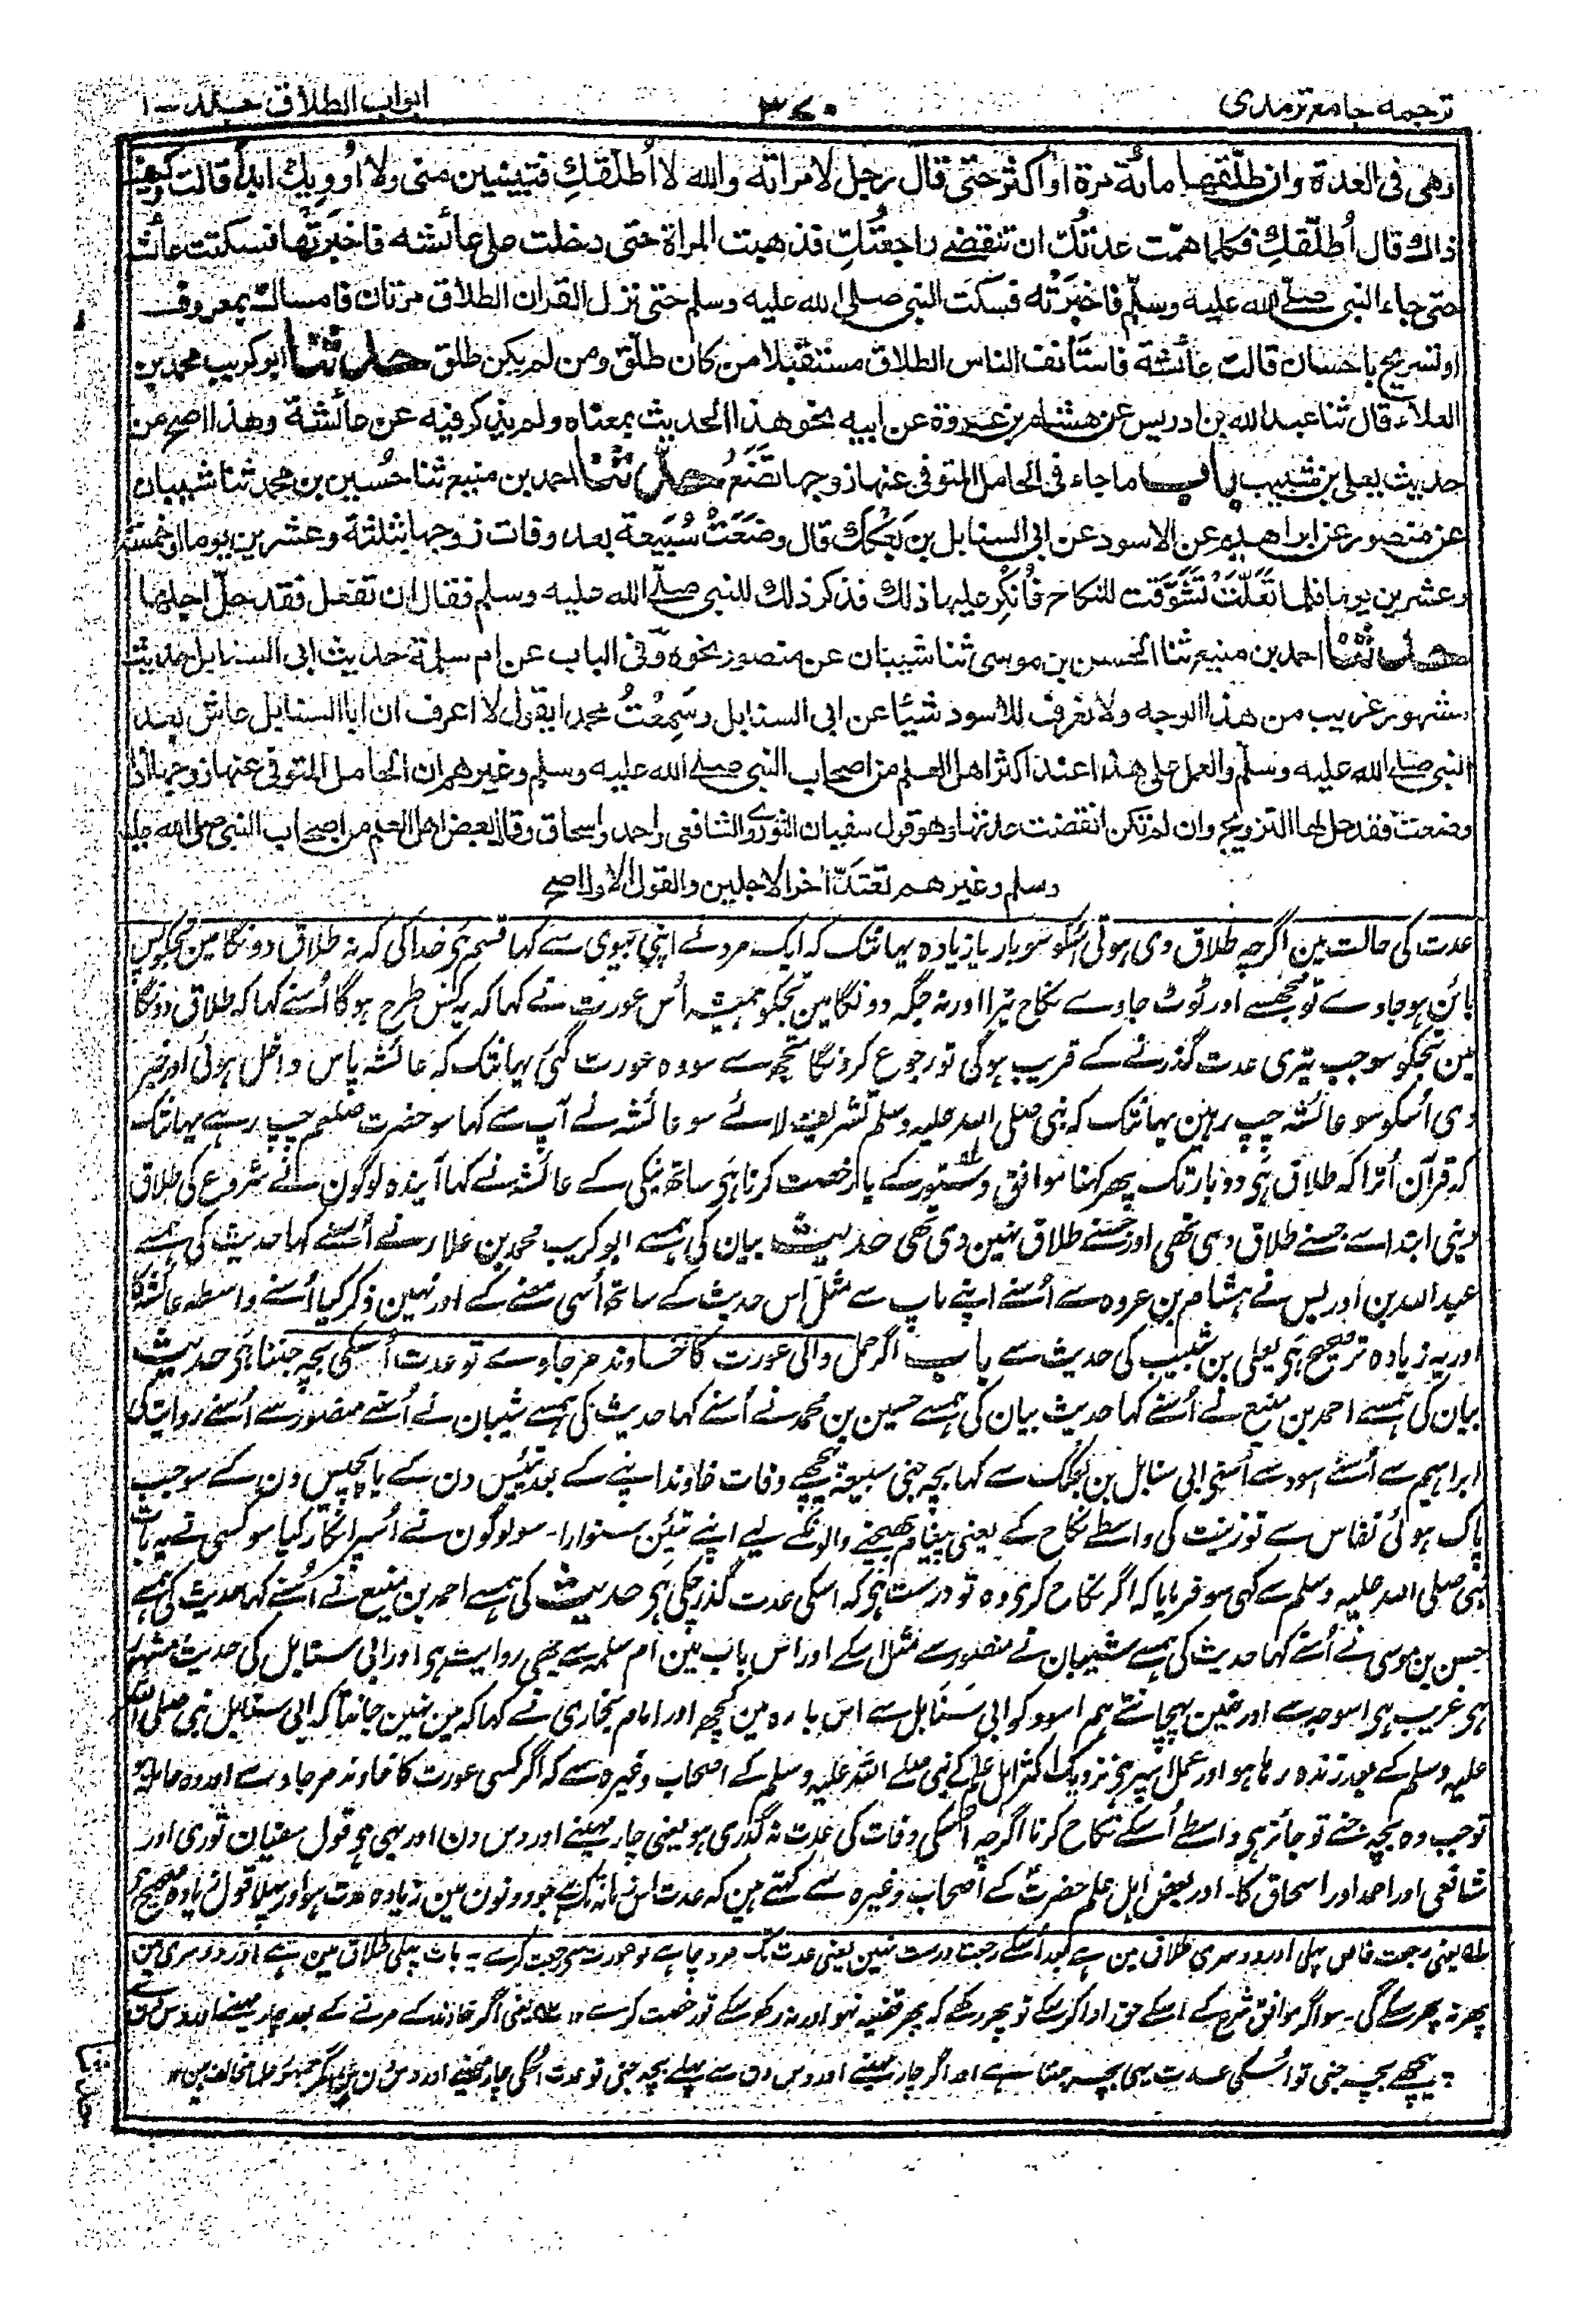 ترجمہ جامع ترمذی
۳۷۰
ابواب الطلاق جلد - ۱
وهى فى العدة وان طلّقها مائة مرة او اكثر حتى قال رجل لامراته والله لا اُطلّقكِ فتبينين منى ولا اُوويك ابدًا قالت وكيف
ذاك قال اُطلّقكِ فكلما همّت عدتُكِ ان تنقضے راجعتُكِ فذهبت المراة حتى دخلت على عائشه فاخبرتها فسكتت عائشة
حتى جاء النبى صلے الله عليه وسلّم فاخبرَتْه فسكت النبى صلے الله عليه وسلم حتى نزل القران الطلاق مرتان فامساك بمعروف
او تسريح باحسان قالت عائشة فاستأنف الناس الطلاق مستقبلا من كان طلّق ومن لم يكن طلق حدثنا ابو كريب محمد بن
العلاء قال ثنا عبد الله بن ادريس عن هشام بن عروة عن ابيه نحو هذا الحديث بمعناه ولم يذكر فيه عن عائشة وهذا اصح من
حديث يعلى بن شبيب باب ما جاء فى الحامل المتوفى عنها زوجها تضَعُ حدثنا احمد بن منيع ثنا حُسين بن محمد ثنا شيبان
عن منصور عن ابراهيم عن الاسود عن ابى السنابل بن بَعْكَك قال وضَعَتْ سُبَيعة بعد وفات زوجها بثلثة وعشرين يوما او خمسة
وعشرين يوما فلما تَعَلَّتْ تَشَوَّفَت للنكاح فاُنكِر عليها ذلك فذكر ذلك للنبى صلے الله عليه وسلم فقال ان تفعل فقد حلّ اجلها
حدثنا احمد بن منيع ثنا الحسن بن موسى ثنا شيبان عن منصور نحوه وفى الباب عن ام سلمة حديث ابى السنابل حديث
مشهور غريب من هذا الوجه ولا نعرف للاسود شيئا عن ابى السنابل وسَمِعْتُ محمدا يقول لا اعرف ان ابا السنابل عاش بعد
النبى صلے الله عليه وسلّم والعمل على هذا عند اكثر اهل العلم من اصحاب النبى صلے الله عليه وسلم وغيرهم ان الحامل المتوفى عنها زوجها اذا
وضعت فقد حل لها التزويج وان لم تكن انقضت عدتها وهو قول سفيان الثورى والشافعى واحمد واسحاق وقال بعض اهل العلم من اصحاب النبى صلى الله عليه
وسلم وغيرهم تعتدّ اخر الاجلين والقول الاول اصح
عدت کی حالت مین اگرچہ طلاق دی ہوتی اُسکو سو بار یا زیادہ یہانتک کہ ایک مرد نے اپنی بیوی سے کہا قسم ہَی خدا کی کہ نہ طلاق دونگا مین تجکو پس
بائن ہو جاوے تو مجھسے اور ٹوٹ جاوے نکاح تیرا اور نہ جگہ دونگا مین تجکو ہمیشہ اُس عورت نے کہا کہ یہ کس طرح ہوگا اُسنے کہا کہ طلاق دونگا
مین تجکو سو جب تیری عدت گذرنے کے قریب ہوگی تو رجوع کرونگا تجھ سے سو وہ عورت گئی یہانتک کہ عائشہ پاس داخل ہوئی اور خبر
دی اُسکو سو عائشہ چپ رہین یہانتک کہ نبی صلی اللہ علیہ وسلم تشریف لائے سو عائشہ نے آپ سے کہا سو حضرت صلعم چپ رہے یہانتک
کہ قرآن اُترا کہ طلاق ہَی دو بار تک پھر رکھنا موافق دستور کے یا رخصت کرنا ہَی ساتھ نیکی کے عائشہ نے کہا آیندہ لوگون نے شروع کی طلاق
دینی ابتدا سے جسنے طلاق دی تھی اور جسنے طلاق نہین دی تھی حدیث بیان کی ہمسے ابو کریب محمد بن علاء نے اُسنے کہا حدیث کی ہمسے
عبد اللہ بن ادریس نے ہشام بن عروہ سے اُسنے اپنے باپ سے مثل اِس حدیث کے ساتھ اُسی معنے کے اور نہین ذکر کیا اُسنے واسطہ عائشہ کا
اور یہ زیادہ تر صحیح ہَی یعلی بن شبیب کی حدیث سے باب اگر حمل والی عورت کا خاوند مر جاوے تو عدت اُسکی بچہ جننا ہَی حدیث
بیان کی ہمسے احمد بن منیع نے اُسنے کہا حدیث بیان کی ہمسے حسین بن محمد نے اُسنے کہا حدیث کی ہمسے شیبان نے اُسنے منصور سے اُسنے روایت کی
ابراہیم سے اُسنے اسود سے اُسنے ابی سنابل بن بعکک سے کہا بچہ جنی سبیعۃ پیچھے وفات خاوند اپنے کے بعد تیئیس دن کے یا پچیس دن کے سو جب
پاک ہوئی نفاس سے تو زینت کی واسطے نکاح کے یعنی پیغام بھیجنے والونکے لیے اپنے تئین سنوارا۔ سو لوگون نے اُسپر انکار کیا سو کسی نے یہ بات
نبی صلی اللہ علیہ وسلم سے کہی سو فرمایا کہ اگر نکاح کری وہ تو درست ہَی کہ اسکی عدت گذر چکی ہَی حدیث کی ہمسے احمد بن منیع نے اُسنے کہا حدیث کی ہمسے
حسن بن موسی نے اُسنے کہا حدیث کی ہمسے شیبان نے منصور سے مثل اسکے اور اس باب مین ام سلمہ سے بھی روایت ہی اور ابی سنابل کی حدیث مشہور
ہی غریب ہی اسوجہ سے اور نہین پہچانتے ہم اسود کو ابی سنابل سے اس بارہ مین کچھ اور امام بخاری نے کہا کہ مین نہین جانتا کہ ابی سنابل نبی صلی اللہ
علیہ وسلم کے بعد زندہ رہا ہو اور عمل اسپر ہَی نزدیک اکثر اہل علم کے نبی صلے اللہ علیہ وسلم کے اصحاب وغیرہ سے کہ اگر کسی عورت کا خاوند مر جاوے اور وہ حاملہ ہو
تو جب وہ بچہ جنے تو جائز ہی واسطے اُسکے نکاح کرنا اگرچہ اسکی وفات کی عدت نہ گذری ہو یعنی چار مہینے اور دس دن اور یہی ہَی قول سفیان ثوری اور
شافعی اور احمد اور اسحاق کا۔ اور بعض اہل علم حضرت کے اصحاب وغیرہ سے کہتے ہین کہ عدت اس زمانہ تک ہے جو دونون مین زیادہ مدت ہو اور پہلا قول زیادہ صحیح ہَی
لہ یعنی رجعت خاص پہلی اور دوسری طلاق مین ہے بعد اُسکے رجعت درست نہین یعنی عدت تک مرد چاہے تو عورت سے رجعت کرے یہ بات پہلی طلاق مین ہے اور دوسری مین
پھر نہ پھر سکے گی۔ سو اگر موافق شرع کے اسکے حق ادا کر سکے تو پھر رکھے کہ پھر قضیہ نہو اور نہ رکھ سکے تو رخصت کرے ۱۲ یعنی اگر خاوند کے مرنے کے بعد چار مہینے اور دس دن
پیچھے بچہ جنی تو اُسکی عدت یہی بچہ جننا ہے اور اگر چار مہینے اور دس دن سے پہلے بچہ جنی تو عدت اُسکی چار مہینے اور دس دن